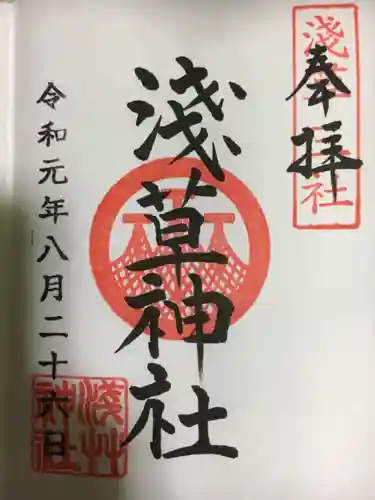 奉拝
淺草神社
淺草神社
令和元年八月二十六日
淺草神社